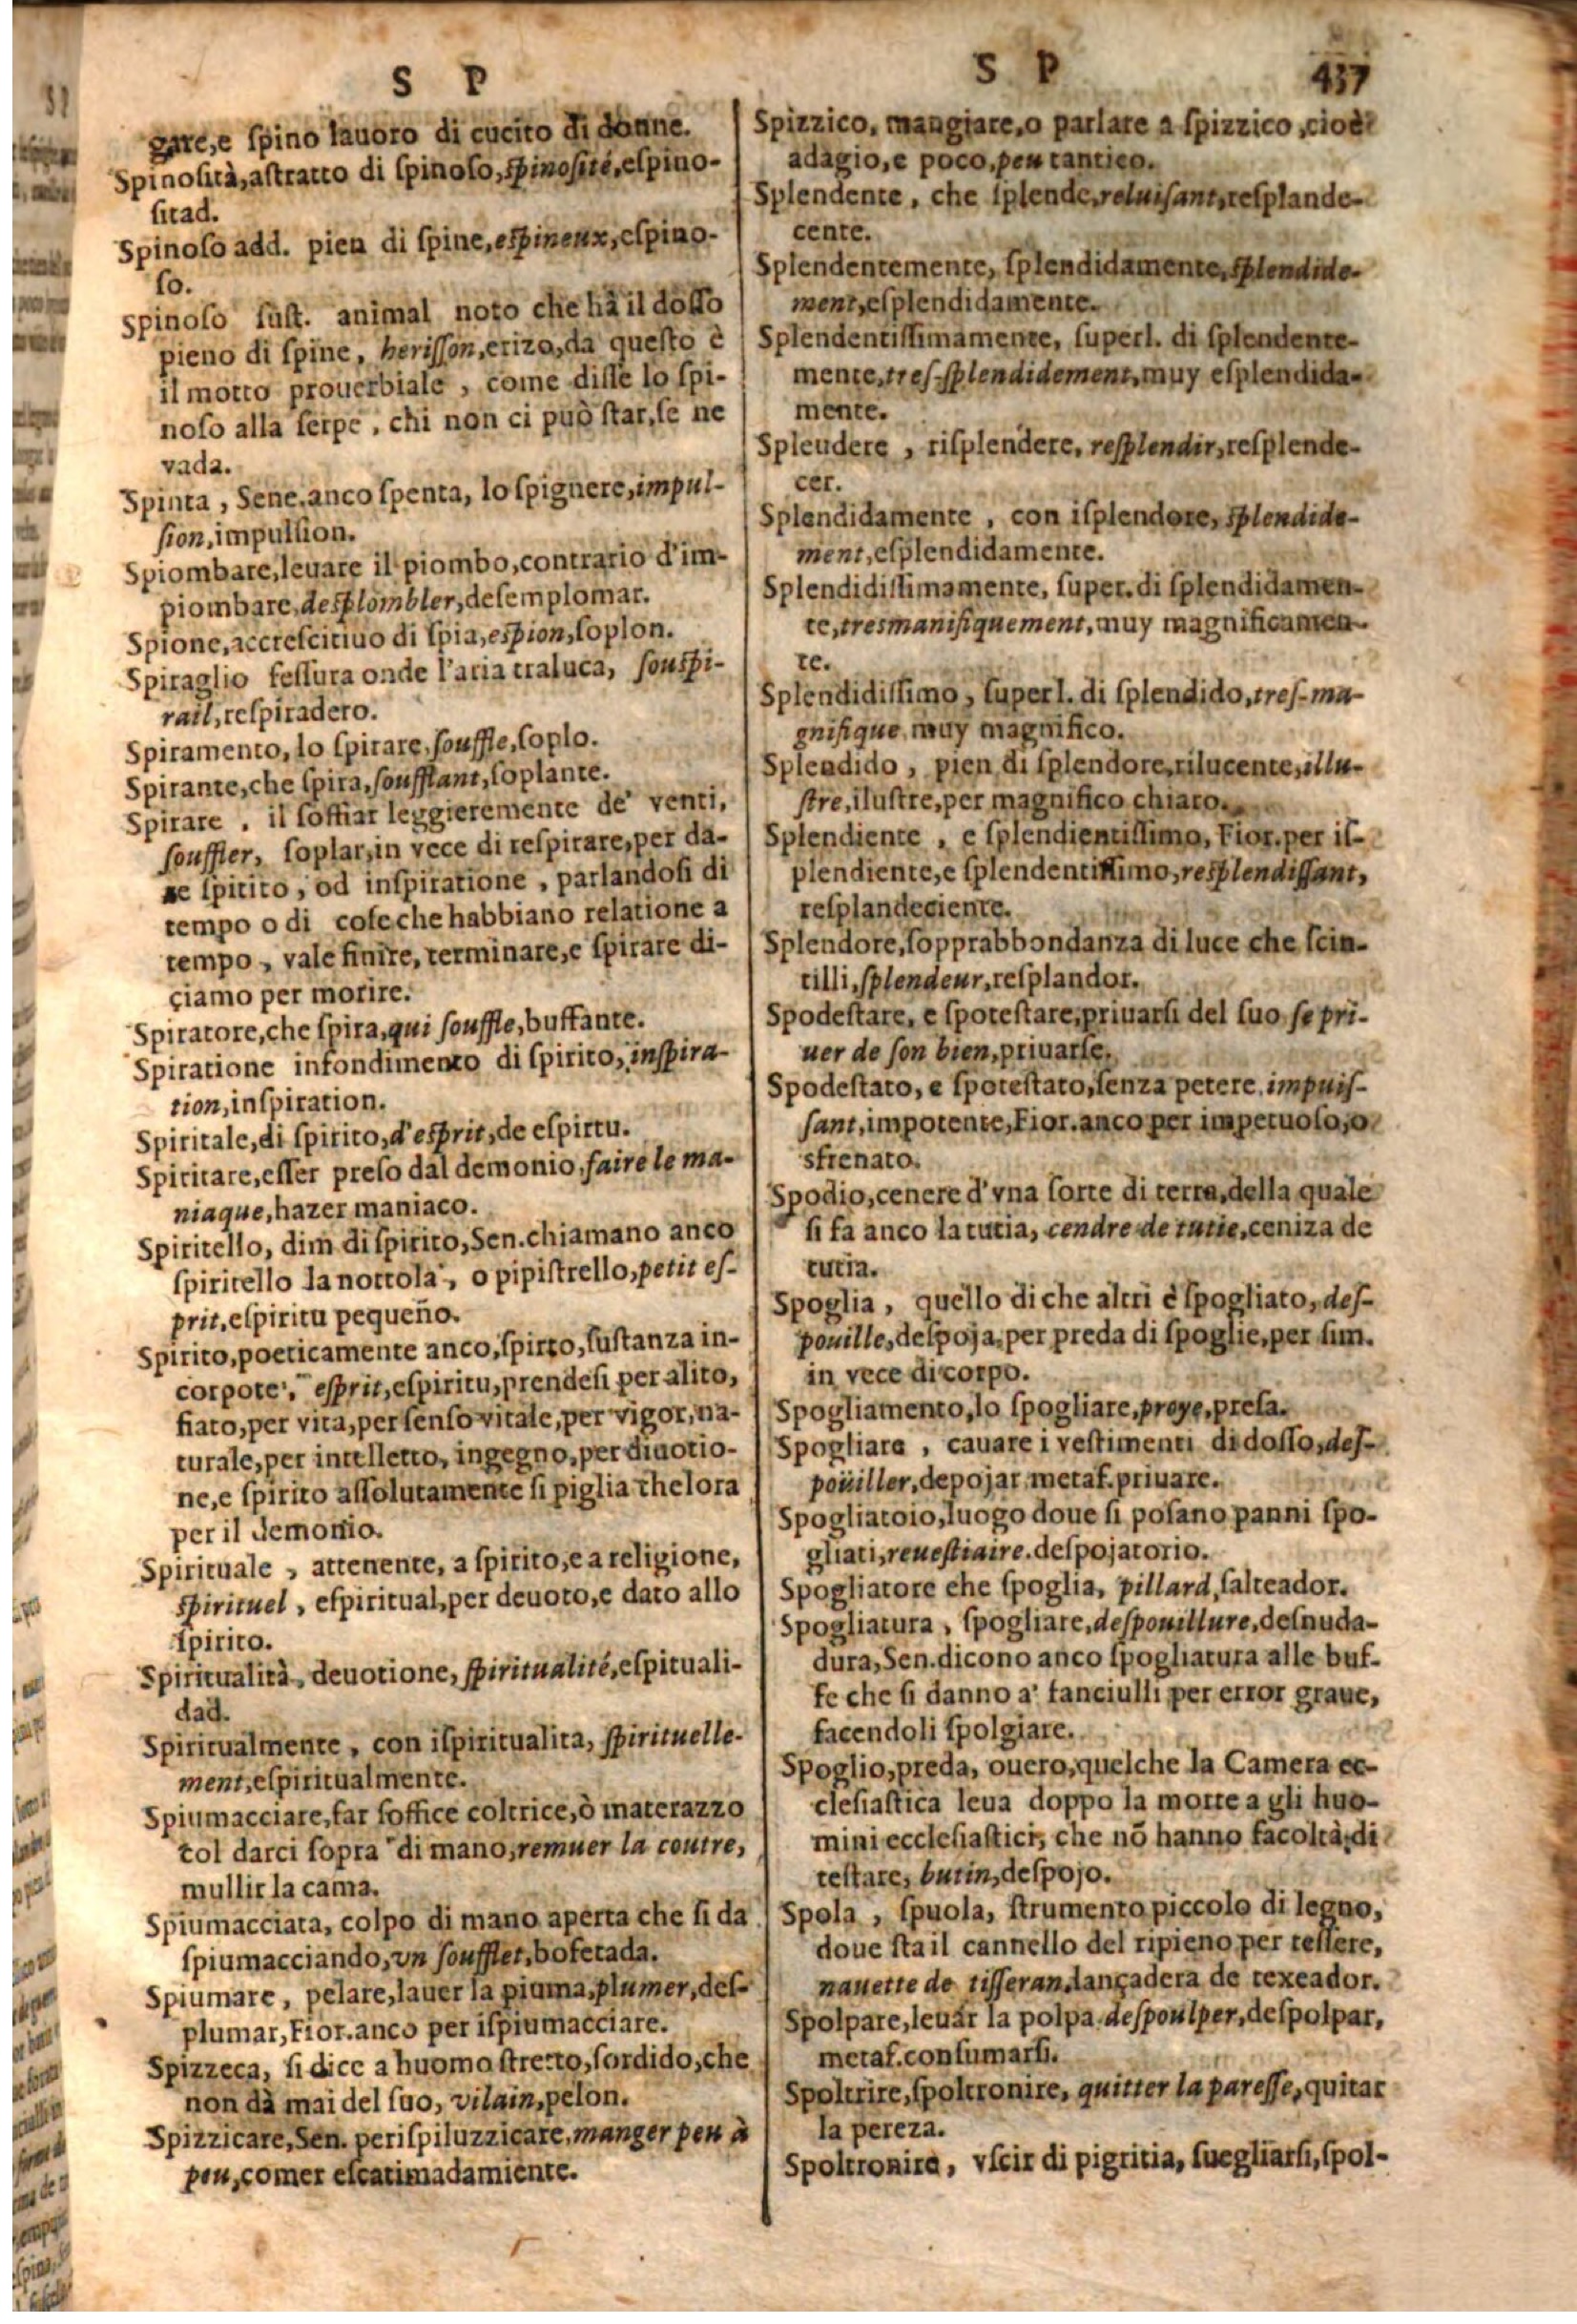 S P
gare,e ſpino lauoro di cucito di donne.
Spinoſità,aſtratto di ſpinoſo,ſpinoſité,eſpino-
ſitad.
Spinoſo add. pien di ſpine,eſpineux,eſpino-
ſo.
Spinoſo ſuſt. animal noto che hà il doſſo
pieno di ſpine, heriſſon,erizo,da queſto è
il motto prouerbiale , come diſſe lo ſpi-
noſo alla ſerpe , chi non ci può ſtar,ſe ne
vada.
Spinta , Sene.anco ſpenta, lo ſpignere,impul-
ſion,impulſion.
Spiombare,leuare il piombo,contrario d'im-
piombare,deſplombler,deſemplomar.
Spione,accreſcitiuo di ſpia,eſpion,ſoplon.
Spiraglio feſſura onde l'aria traluca, ſouſpi-
rail,reſpiradero.
Spiramento, lo ſpirare,ſouffle,ſoplo.
Spirante,che ſpira,ſoufflant,ſoplante.
Spirare , il ſoffiar leggieremente de' venti,
ſouffler, ſoplar,in vece di reſpirare,per da-
re ſpirito , od inſpiratione , parlandoſi di
tempo o di coſe che habbiano relatione a
tempo , vale finire, terminare,e ſpirare di-
çiamo per morire.
Spiratore,che ſpira,qui ſouffle,buffante.
Spiratione infondimento di ſpirito, inſpira-
tion,inſpiration.
Spiritale,di ſpirito,d'eſprit,de eſpirtu.
Spiritare,eſſer preſo dal demonio,faire le ma-
niaque,hazer maniaco.
Spiritello, dim di ſpirito,Sen.chiamano anco
ſpiritello la nottola , o pipiſtrello,petit eſ-
prit,eſpiritu pequeño.
Spirito,poeticamente anco,ſpirto,ſuſtanza in-
corpore , eſprit,eſpiritu,prendeſi per alito,
fiato,per vita,per ſenſo vitale,per vigor,na-
turale,per intelletto, ingegno,per diuotio-
ne,e ſpirito aſſolutamente ſi piglia thelora
per il demonio.
Spirituale , attenente, a ſpirito,e a religione,
ſpirituel , eſpiritual,per deuoto,e dato allo
ſpirito.
Spiritualità, deuotione, ſpiritualité,eſpituali-
dad.
Spiritualmente , con iſpiritualita, ſpirituelle-
ment,eſpiritualmente.
Spiumacciare,far ſoffice coltrice,ò materazzo
tol darci ſopra di mano,remuer la coutre,
mullir la cama.
Spiumacciata, colpo di mano aperta che ſi da
ſpiumacciando,vn ſoufflet,bofetada.
Spiumare , pelare,lauer la piuma,plumer,deſ-
plumar,Fior.anco per iſpiumacciare.
Spizzeca, ſi dice a huomo ſtretto,ſordido,che
non dà mai del ſuo, vilain,pelon.
Spizzicare,Sen. periſpiluzzicare,manger peu à
peu,comer eſcatimadamiente.
S P 437
Spizzico, mangiare,o parlare a ſpizzico ,cioè
adagio,e poco,peu tantico.
Splendente , che ſplende,reluiſant,reſplande-
cente.
Splendentemente, ſplendidamente,ſplendide-
ment,eſplendidamente.
Splendentiſſimamente, ſuperl. di ſplendente-
mente,treſ-ſplendidement,muy eſplendida-
mente.
Spleudere , riſplendere, reſplendir,reſplende-
cer.
Splendidamente , con iſplendore, ſplendide-
ment,eſplendidamente.
Splendidiſſimamente, ſuper. di ſplendidamen-
te,tresmanifiquement,muy magnificamen-
te.
Splendidiſſimo , ſuperl. di ſplendido,treſ-ma-
gnifique,muy magnifico.
Splendido , pien di ſplendore,rilucente,illu-
ſtre,iluſtre,per magnifico chiaro.
Splendiente , e ſplendientiſſimo, Fior.per iſ-
plendiente,e ſplendentiſſimo,reſplendiſſant,
reſplandeciente.
Splendore,ſopprabbondanza di luce che ſcin-
tilli,ſplendeur,reſplandor.
Spodeſtare, e ſpoteſtare,priuarſi del ſuo ſe pri-
uer de ſon bien,priuarſe.
Spodeſtato, e ſpoteſtato,ſenza petere,impuiſ-
ſant,impotente,Fior.anco per impetuoſo,o
sfrenato.
Spodio,cenere d'vna ſorte di terra,della quale
ſi fa anco la tutia, cendre de tutie,ceniza de
tutia.
Spoglia , quello di che altri è ſpogliato, deſ-
pouille,deſpoja,per preda di ſpoglie,per ſim.
in vece di corpo.
Spogliamento,lo ſpogliare,proye,preſa.
Spogliare , cauare i veſtimenti di doſſo,deſ-
poüiller,depojar metaf.priuare.
Spogliatoio,luogo doue ſi poſano panni ſpo-
gliati,reueſtiaire.deſpojatorio.
Spogliatore ehe ſpoglia, pillard,ſalteador.
Spogliatura , ſpogliare,deſpouillure,deſnuda-
dura,Sen.dicono anco ſpogliatura alle buf-
fe che ſi danno a' fanciulli per error graue,
facendoli ſpolgiare.
Spoglio,preda, ouero,quelche la Camera ec-
cleſiaſtica leua doppo la morte a gli huo-
mini eccleſiaſtici, che nõ hanno facoltà di
teſtare, butin,deſpojo.
Spola , ſpuola, ſtrumento piccolo di legno,
doue ſta il cannello del ripieno per teſſere,
nauette de tiſſeran,lançadera de texeador.
Spolpare,leuar la polpa,deſpoulper,deſpolpar,
metaf.conſumarſi.
Spoltrire,ſpoltronire, quitter la pareſſe,quitar
la pereza.
Spoltronire , vſcir di pigritia, ſuegliarſi,ſpol-